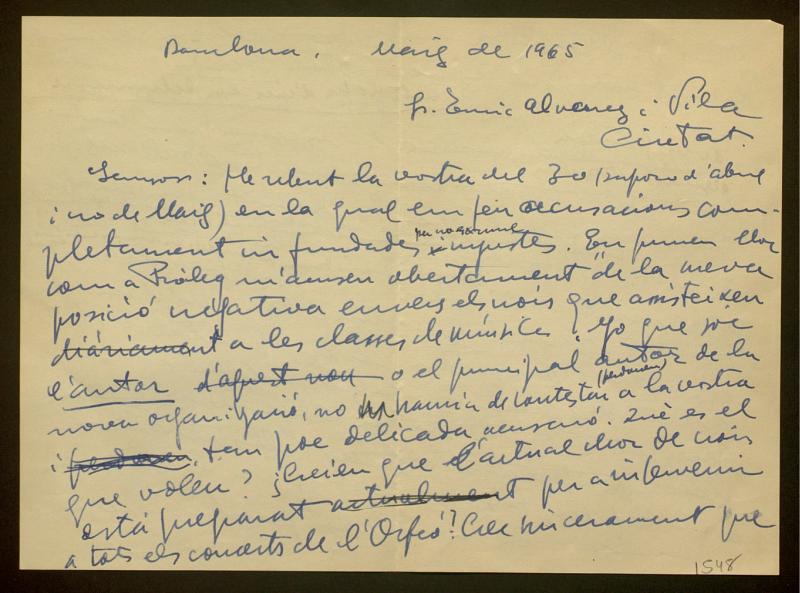 Barcelona, Maig de 1965
Sr. Enric Alvarez i Vila
Ciutat.
Senyors: He rebut la vostra del 30 (suposo d'abril
i no de Maig) en la qual em feu acusacions com-
pletament infundades per no dir injustes. En primer lloc
com a Pròleg m'acuseu obertament "de la meva
posició negativa envers els nois que assisteixen
diàriament a les classes de música". Jo que sóc
l'autor d'aquest nou o el principal autor de la
nova organització, no hauria de contestar (perdoneu) a la vostra
i perdoneu, tan poc delicada acusació. Què es el
que voleu? ¿Creien que l'actual chor de nois
està preparat actualment per a intervenir
a tots els concerts de l'Orfeó? Crec sincerament que
1548